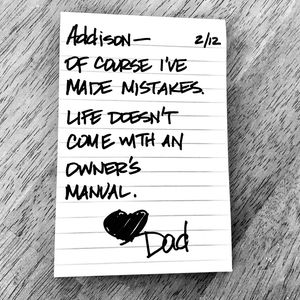 Addison— 2/12
OF COURSE I'VE
MADE MISTAKES.
LIFE DOESN'T
COME WITH AN
OWNER'S
MANUAL.
Dad